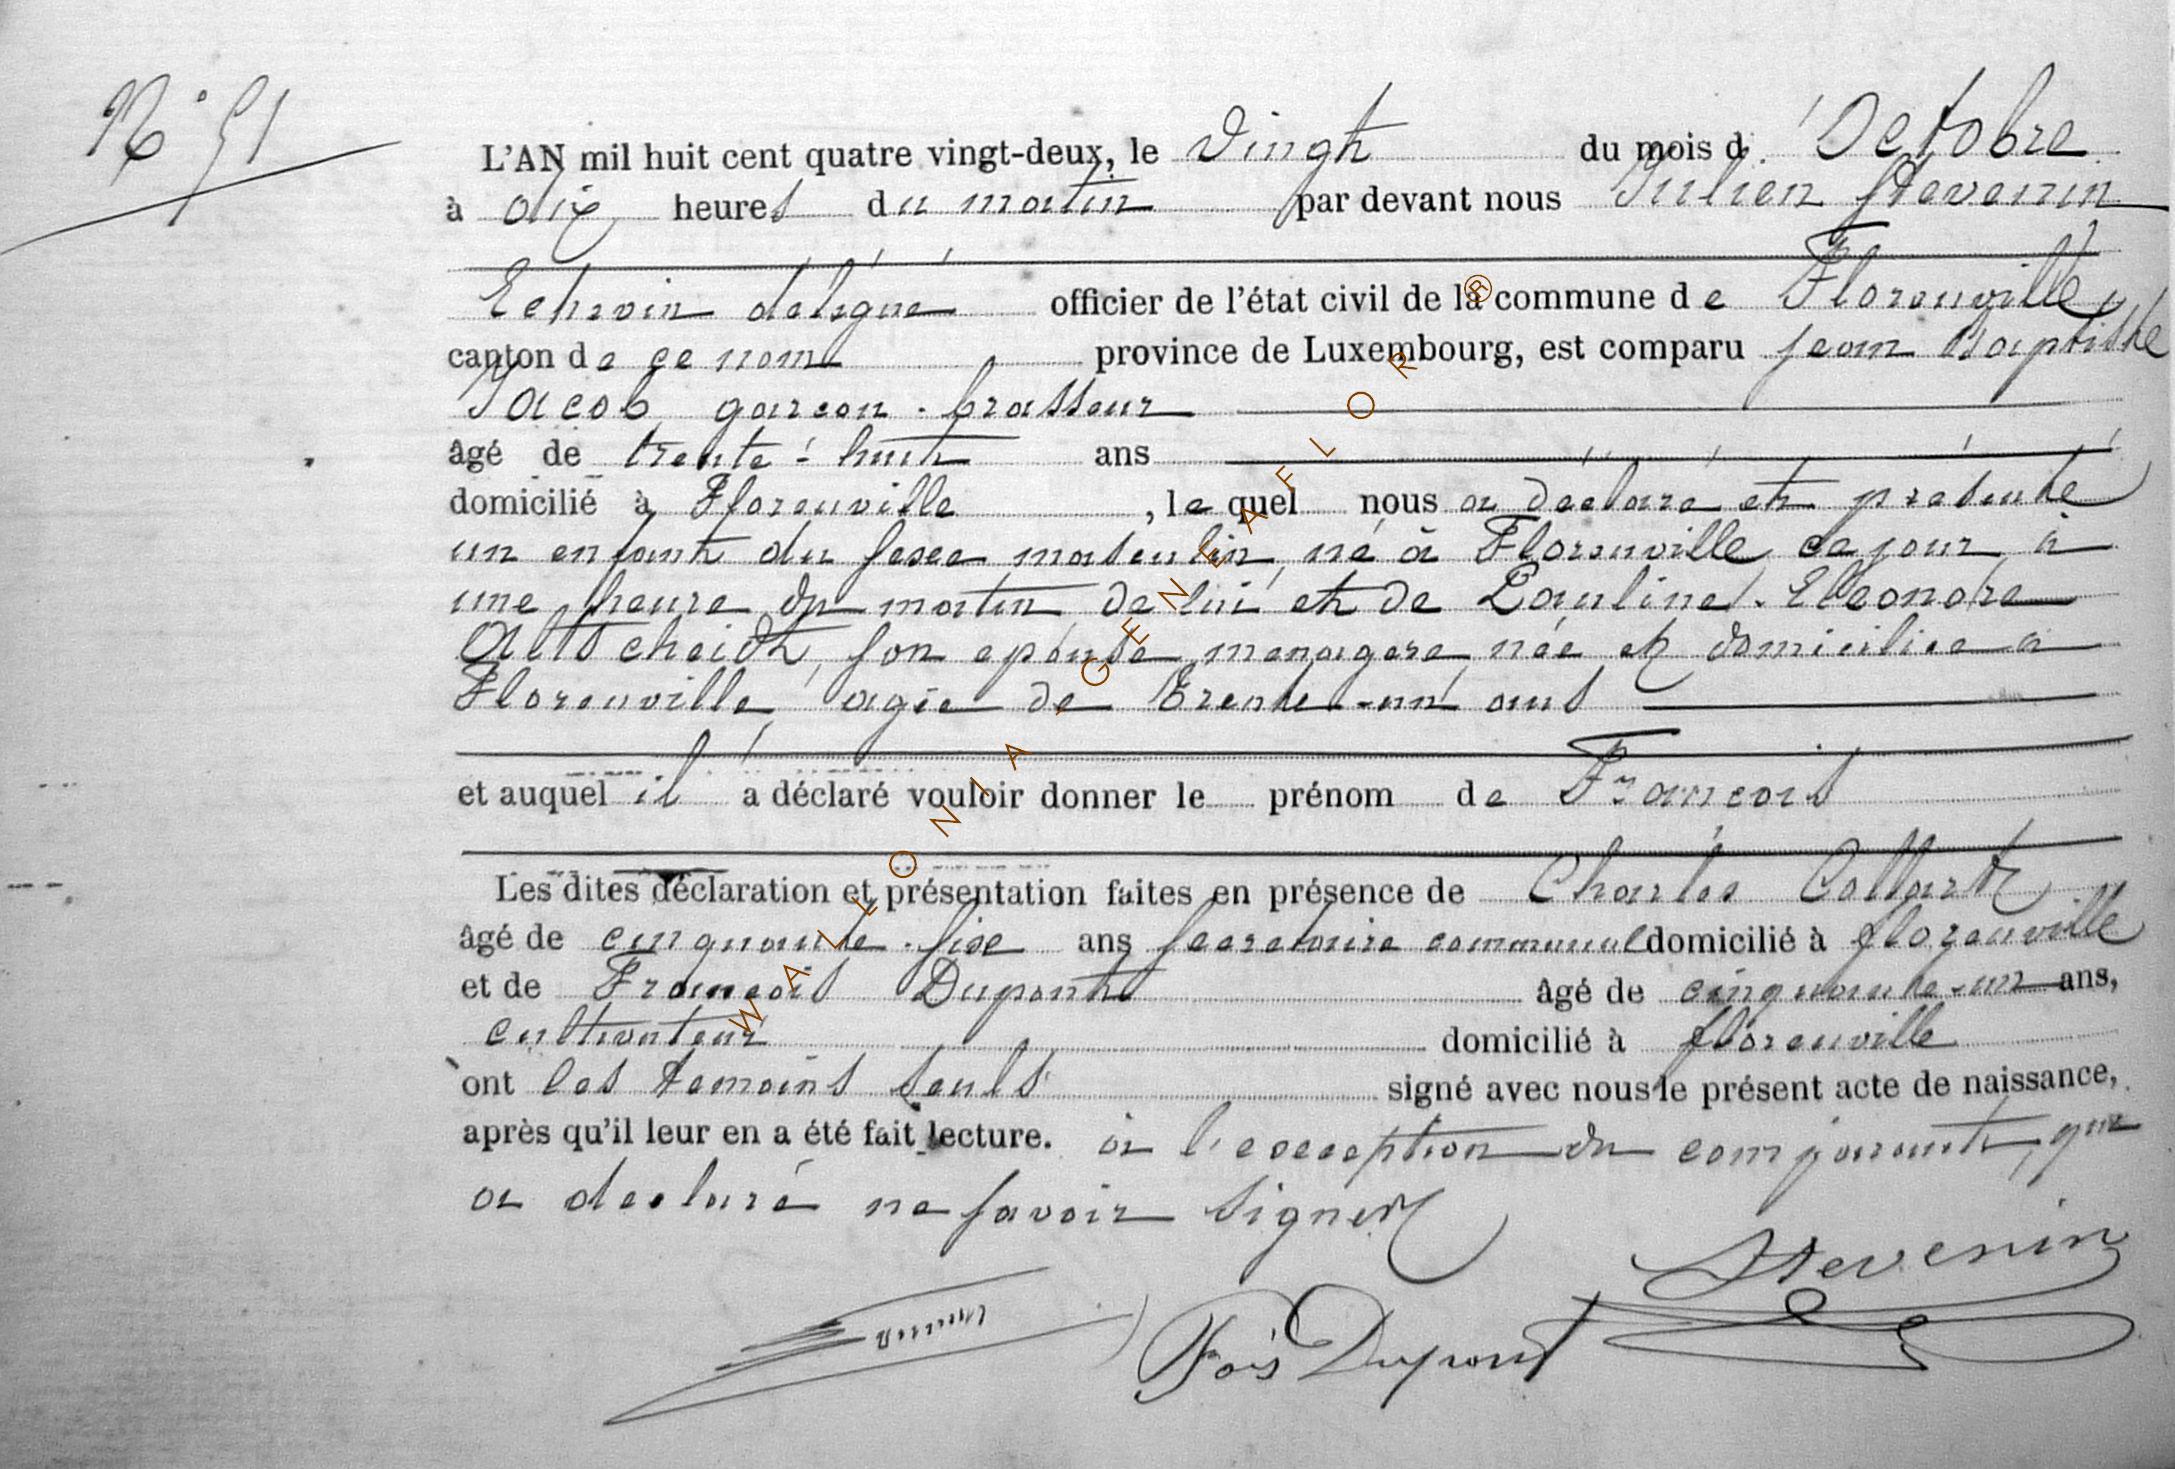 N° 51
L'AN mil huit cent quatre vingt-deux, le vingt du mois d'Octobre
à dix heures du matin par devant nous Julien Stevenin
Echevin délégué officier de l'état civil de la commune de Florenville
canton de ce nom province de Luxembourg, est comparu Jean Baptiste
Jacob garçon-brasseur
âgé de trente-huit ans
domicilié à Florenville, lequel nous a déclaré et présenté
un enfant du sexe masculin, né à Florenville ce jour à
une heure du matin de lui et de Pauline-Eléonore
Altscheidt, son épouse, menagère, née et domiciliée à
Florenville, agée de trente-un ans
et auquel il a déclaré vouloir donner le prénom de François
Les dites déclaration et présentation faites en présence de Charles Collard
âgé de cinquante-six ans secretaire communal domicilié à florenville
et de François Dupont âgé de cinquante-un ans,
cultivateur domicilié à florenville
ont les temoins seuls signé avec nous le présent acte de naissance,
après qu'il leur en a été fait lecture. à l'exception du comparant, qui
a declaré ne savoir signer
Stevenin
Fois Dupont
WALLONIA GENEAFLOR ®